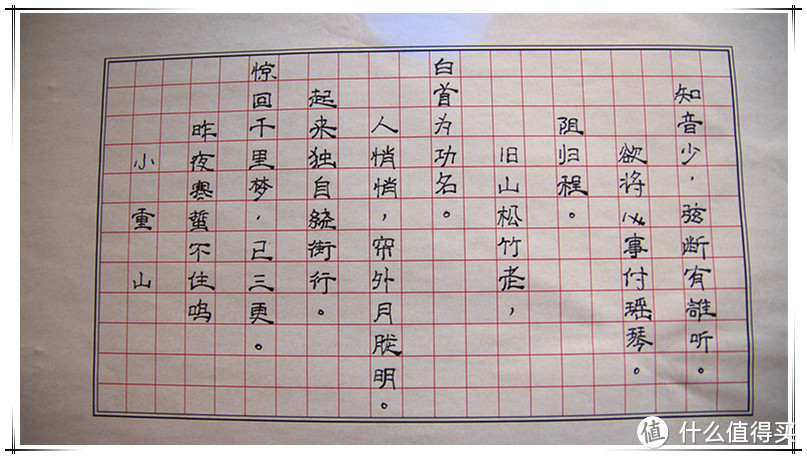 小重山
昨夜寒蛩不住鸣
惊回千里梦，已三更。
起来独自繞街行。
人悄悄，帘外月胧明。
白首为功名。
旧山松竹老，
阻归程。
欲将心事付瑶琴。
知音少，弦断有誰听。
值 什么值得买